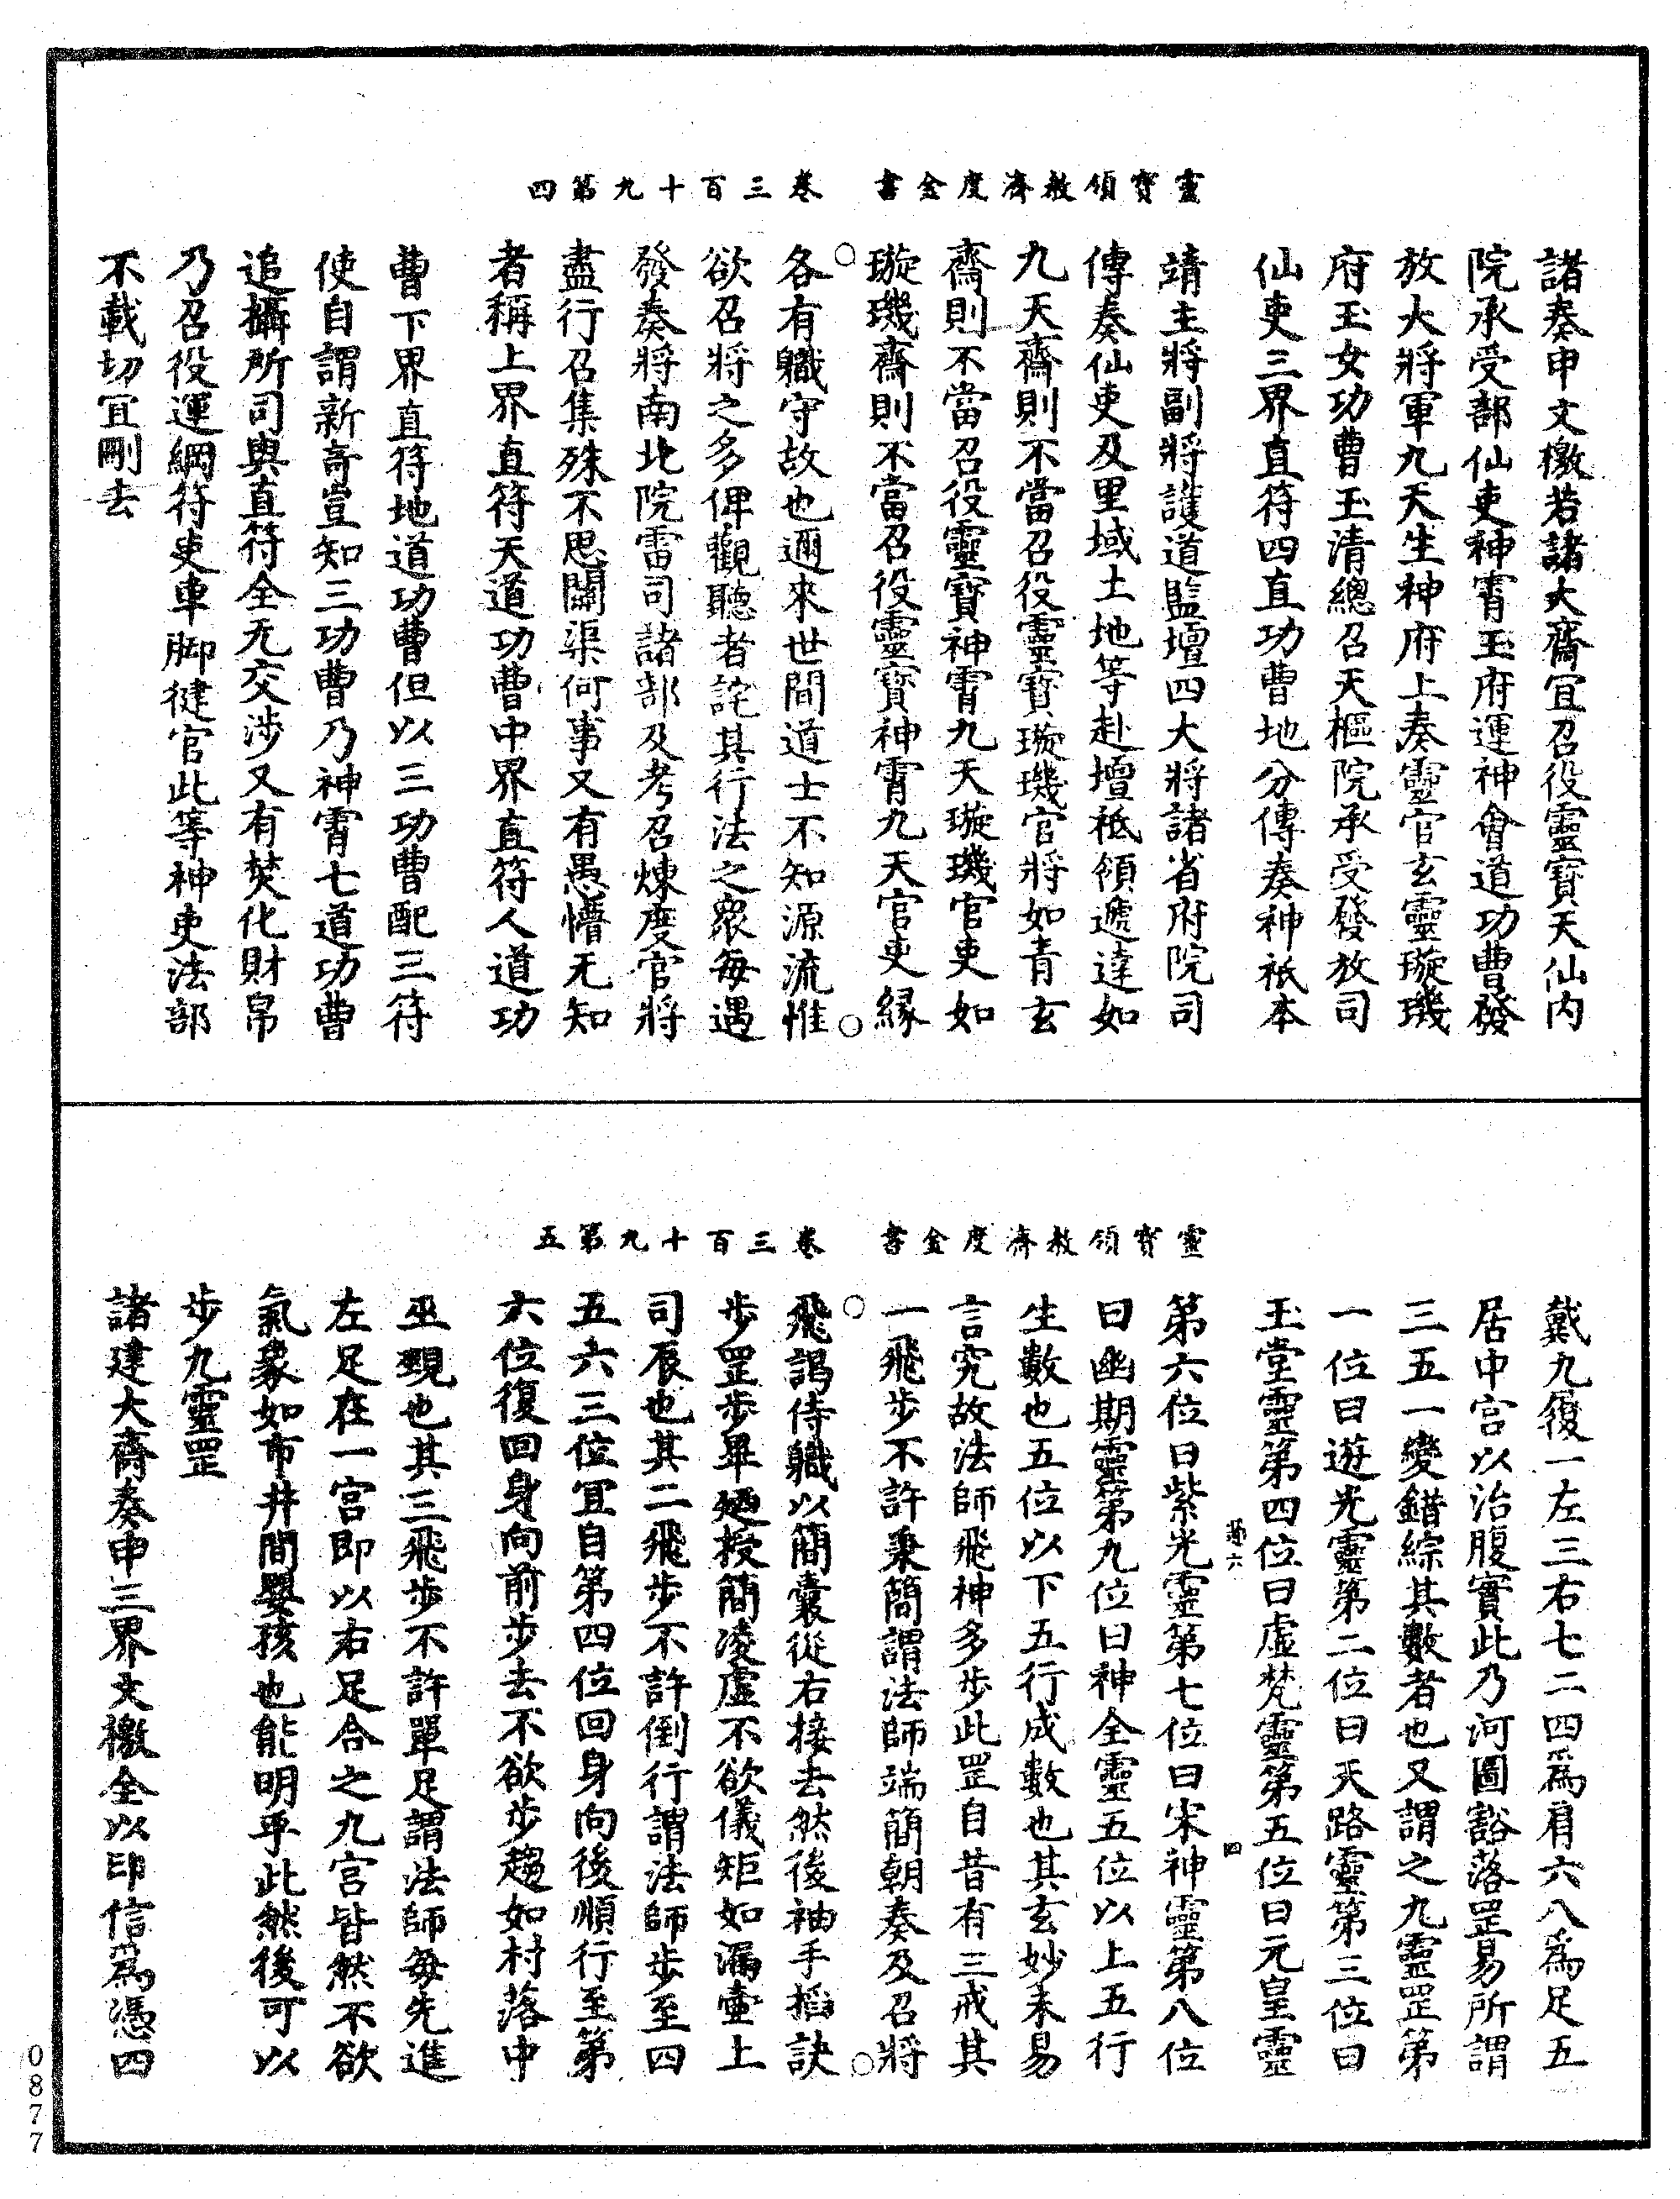 靈寶領教濟度金書　卷三百十九第四
諸奏申文檄若諸大齋宜召役靈寶天仙内
院承受部仙吏神霄玉府運神會道功曹發
放大將軍九天生神府上奏靈官玄靈璇璣
府玉女功曹玉清總召天樞院承受發放司
仙吏三界直符四直功曹地分傳奏神祇本
靖主將副將護道監壇四大將諸省府院司
傳奏仙吏及里域土地等赴壇祗領遞達如
九天齋則不當召役靈寶璇璣官將如青玄
齋則不當召役靈寶神霄九天璇璣官吏如
璇璣齋則不當召役靈寶神霄九天官吏緣
各有職守故也邇來世間道士不知源流惟
欲召將之多俾觀聽者詫其行法之衆每遇
發奏將南北院雷司諸部及考召煉度官將
盡行召集殊不思關渠何事又有愚懵无知
者稱上界直符天道功曹中界直符人道功
曹下界直符地道功曹但以三功曹配三符
使自謂新奇豈知三功曹乃神霄七道功曹
追攝所司與直符全无交涉又有焚化財帛
乃召役運綱符吏車脚健官此等神吏法部
不載切宜刪去
靈寶領教濟度金書　卷三百十九第五
戴九履一左三右七二四爲肩六八爲足五
居中宮以治腹實此乃河圖豁落罡易所謂
三五一變錯綜其數者也又謂之九靈罡第
一位曰遊光靈第二位曰天路靈第三位曰
玉堂靈第四位曰虛梵靈第五位曰元皇靈
第六位曰紫光靈第七位曰宋神靈第八位
曰幽期靈第九位曰神全靈五位以上五行
生數也五位以下五行成數也其玄妙未易
言究故法師飛神多步此罡自昔有三戒其
一飛步不許秉簡謂法師端簡朝奏及召將
飛謁侍職以簡囊從右接去然後袖手掐訣
步罡步畢廼授簡凌虛不欲儀矩如漏壷上
司辰也其二飛步不許倒行謂法師步至四
五六三位宜自第四位回身向後順行至第
六位復回身向前步去不欲步趨如村落中
巫覡也其三飛步不許單足謂法師每先進
左足在一宮即以右足合之九宮皆然不欲
氣象如市井間嬰孩也能明乎此然後可以
步九靈罡
諸建大齋奏申三界文檄全以印信爲憑四
四
0877